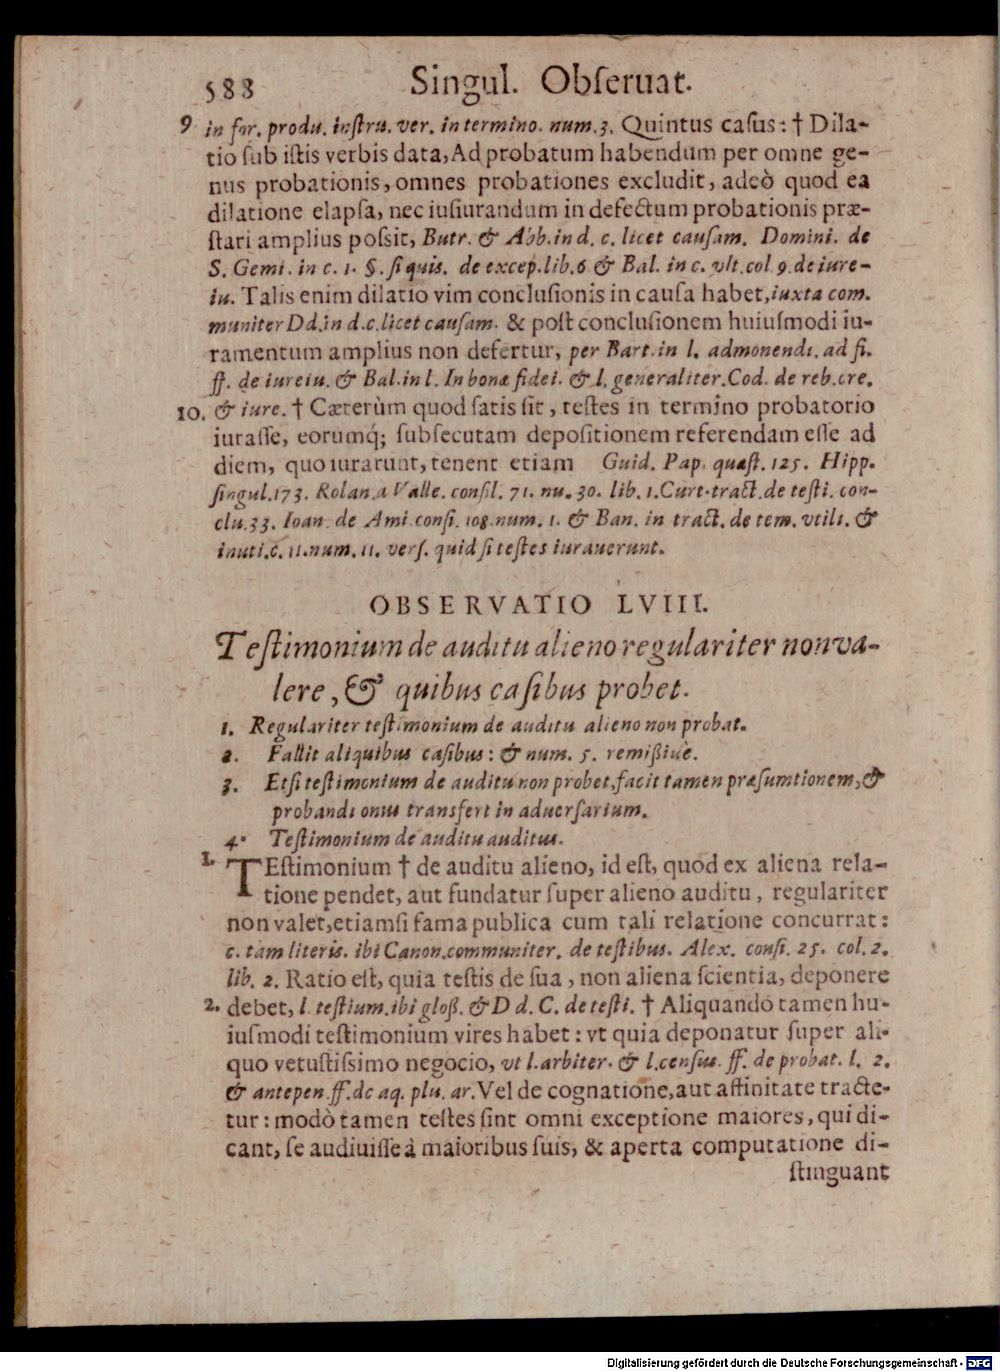 588 Singul. Obſeruat.
9 in for. produ. inſtru. ver. in termino. num. 3. Quintus caſus: † Dila-
tio ſub iſtis verbis data, Ad probatum habendum per omne ge-
nus probationis, omnes probationes excludit, adeò quod ea
dilatione elapſa, nec iuſiurandum in defectum probationis præ-
ſtari amplius poſsit, Butr. & Abb. in d. c. licet cauſam. Domini. de
S. Gemi. in c. 1. §. ſi quis. de excep. lib. 6 & Bal. in c. vlt. col 9. de iure-
iu. Talis enim dilatio vim concluſionis in cauſa habet, iuxta com.
muniter Dd. in d. c. licet cauſam. & poſt concluſionem huiuſmodi iu-
ramentum amplius non defertur, per Bart. in l. admonendi. ad fi.
ff. de iureiu. & Bal. in l. In bonæ fidei. & l. generaliter. Cod. de reb. cre.
10. & iure. † Cæterùm quod ſatis ſit, teſtes in termino probatorio
iuraſſe, eorumq́; ſubſecutam depoſitionem referendam eſſe ad
diem, quo iurarunt, tenent etiam Guid. Pap. quæſt. 125. Hipp.
ſingul. 173. Rolan. a Valle. conſil. 71. nu. 30. lib. 1. Curt. tract. de teſti. con-
clu. 33. Ioan. de Ami. conſi. 108. num. 1. & Ban. in tract. de tem. vtili. &
inuti. c. 11. num. 11. verſ. quid ſi teſtes iurauerunt.
OBSERVATIO LVIII.
Teſtimonium de auditu alieno regulariter non va-
lere, & quibus caſibus probet.
1. Regulariter teſtimonium de auditu alieno non probat.
2. Fallit aliquibus caſibus: & num. 5. remißiue.
3. Etſi teſtimonium de auditu non probet, facit tamen præſumtionem, &
probandi onus transfert in aduerſarium.
4. Teſtimonium de auditu auditus.
1. TEſtimonium † de auditu alieno, id eſt, quod ex aliena rela-
tione pendet, aut fundatur ſuper alieno auditu, regulariter
non valet, etiamſi fama publica cum tali relatione concurrat:
c. tam literis. ibi Canon. communiter. de teſtibus. Alex. conſi. 25. col. 2.
lib. 2. Ratio eſt, quia teſtis de ſua, non aliena ſcientia, deponere
2. debet, l. teſtium. ibi gloß. & D d. C. de teſti. † Aliquando tamen hu-
iuſmodi teſtimonium vires habet: vt quia deponatur ſuper ali-
quo vetuſtiſsimo negocio, vt l. arbiter. & l. cenſus. ff. de probat. l. 2.
& antepen. ff. de aq. plu. ar. Vel de cognatione, aut affinitate tracte-
tur: modò tamen teſtes ſint omni exceptione maiores, qui di-
cant, ſe audiuiſſe à maioribus ſuis, & aperta computatione di-
ſtinguant
Digitalisierung gefördert durch die Deutsche Forschungsgemeinschaft - DFG